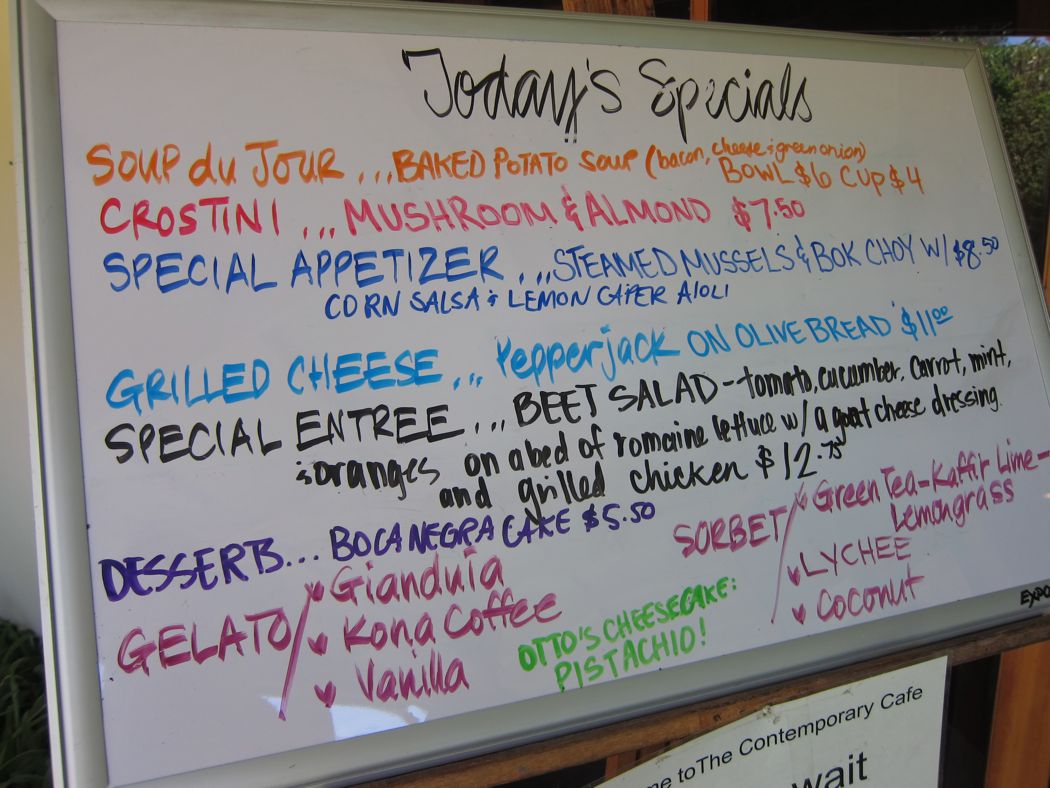 Today's Specials
SOUP du JOUR ... BAKED POTATO SOUP (bacon, cheese & green onion)
BOWL $6 CUP $4
CROSTINI ... MUSHROOM & ALMOND $7.50
SPECIAL APPETIZER ... STEAMED MUSSELS & BOK CHOY W/ $8.50
CORN SALSA & LEMON CAPER AIOLI
GRILLED CHEESE ... Pepperjack ON OLIVE BREAD $11.00
SPECIAL ENTREE ... BEET SALAD - tomato, cucumber, carrot, mint,
& oranges on a bed of romaine lettuce w/ a goat cheese dressing.
and grilled chicken $12.75
DESSERTS... BOCA NEGRA CAKE $5.50
GELATO/
Gianduia
Kona Coffee
Vanilla
OTTO'S CHEESECAKE:
PISTACHIO!
SORBET/
Green Tea-Kaffir Lime-
Lemongrass
LYCHEE
Coconut
EXPO
me to The Contemporary Cafe
wait